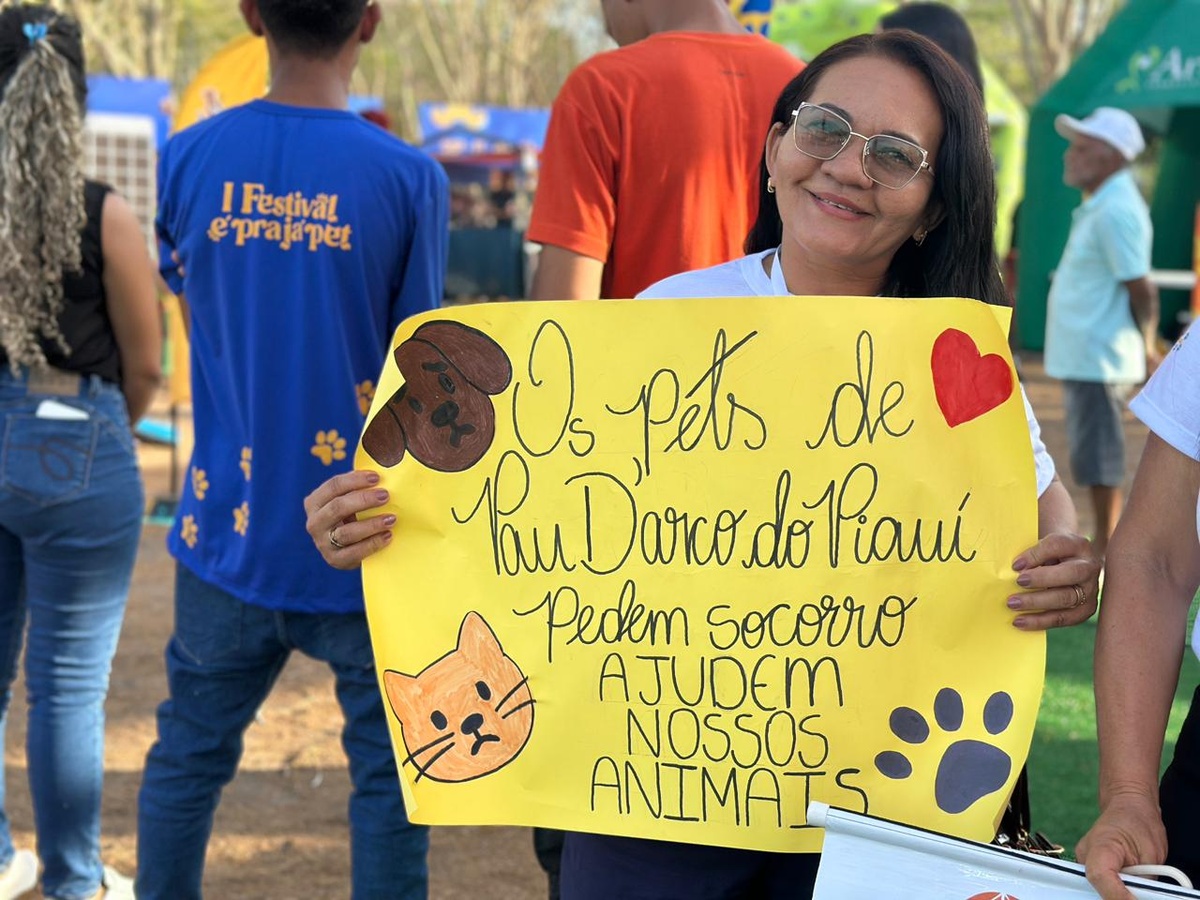 I Festival
é pra já pet
Os pets de
Pau D'arco do Piauí
Pedem socorro
AJUDEM
NOSSOS
ANIMAIS